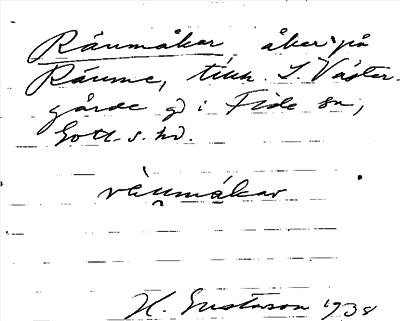 Räumåkar åker på
Räume, tikh. L. Väster-
gårde gd i Fide sn,
Gotl. s. hd.
räu̯måkar
H. Gustavson 1938